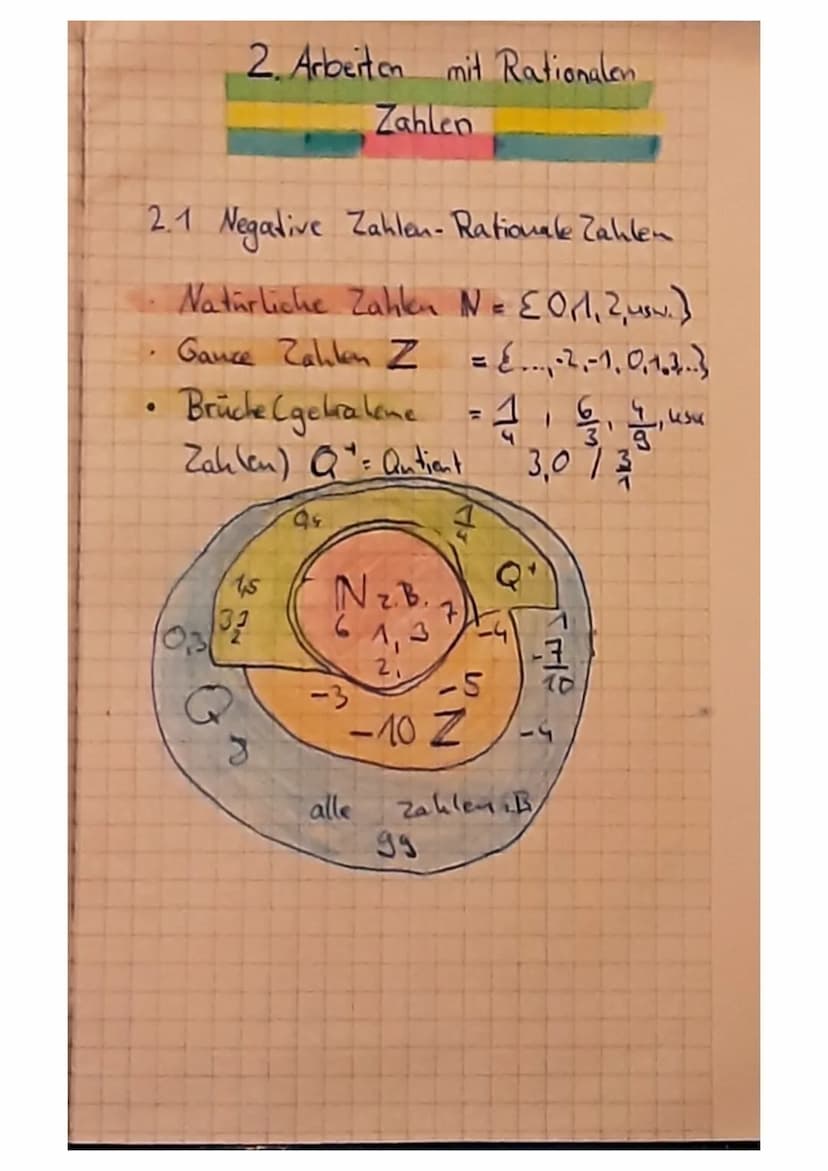 2. Arbeiten mit Rationalen
Zahlen
2.1 Negative Zahlen-Rationale Zahlen
· Natürliche Zahlen N = {0,1,2,usw.}
· Ganze Zahlen Z = {...,-2,-1,0,1,2..}
• Brüche (gebrochene = 1/4, 6/3, 4/9, usw
Zahlen) Q⁺ = Qutient 3,0 / 3/1
1/4
Q⁺
1,5
N z.B. 7
6 1, 3
2,
0,3
-4
-7/10
-3 -5
Q
-10 Z
-4
alle zahlen z.B
99